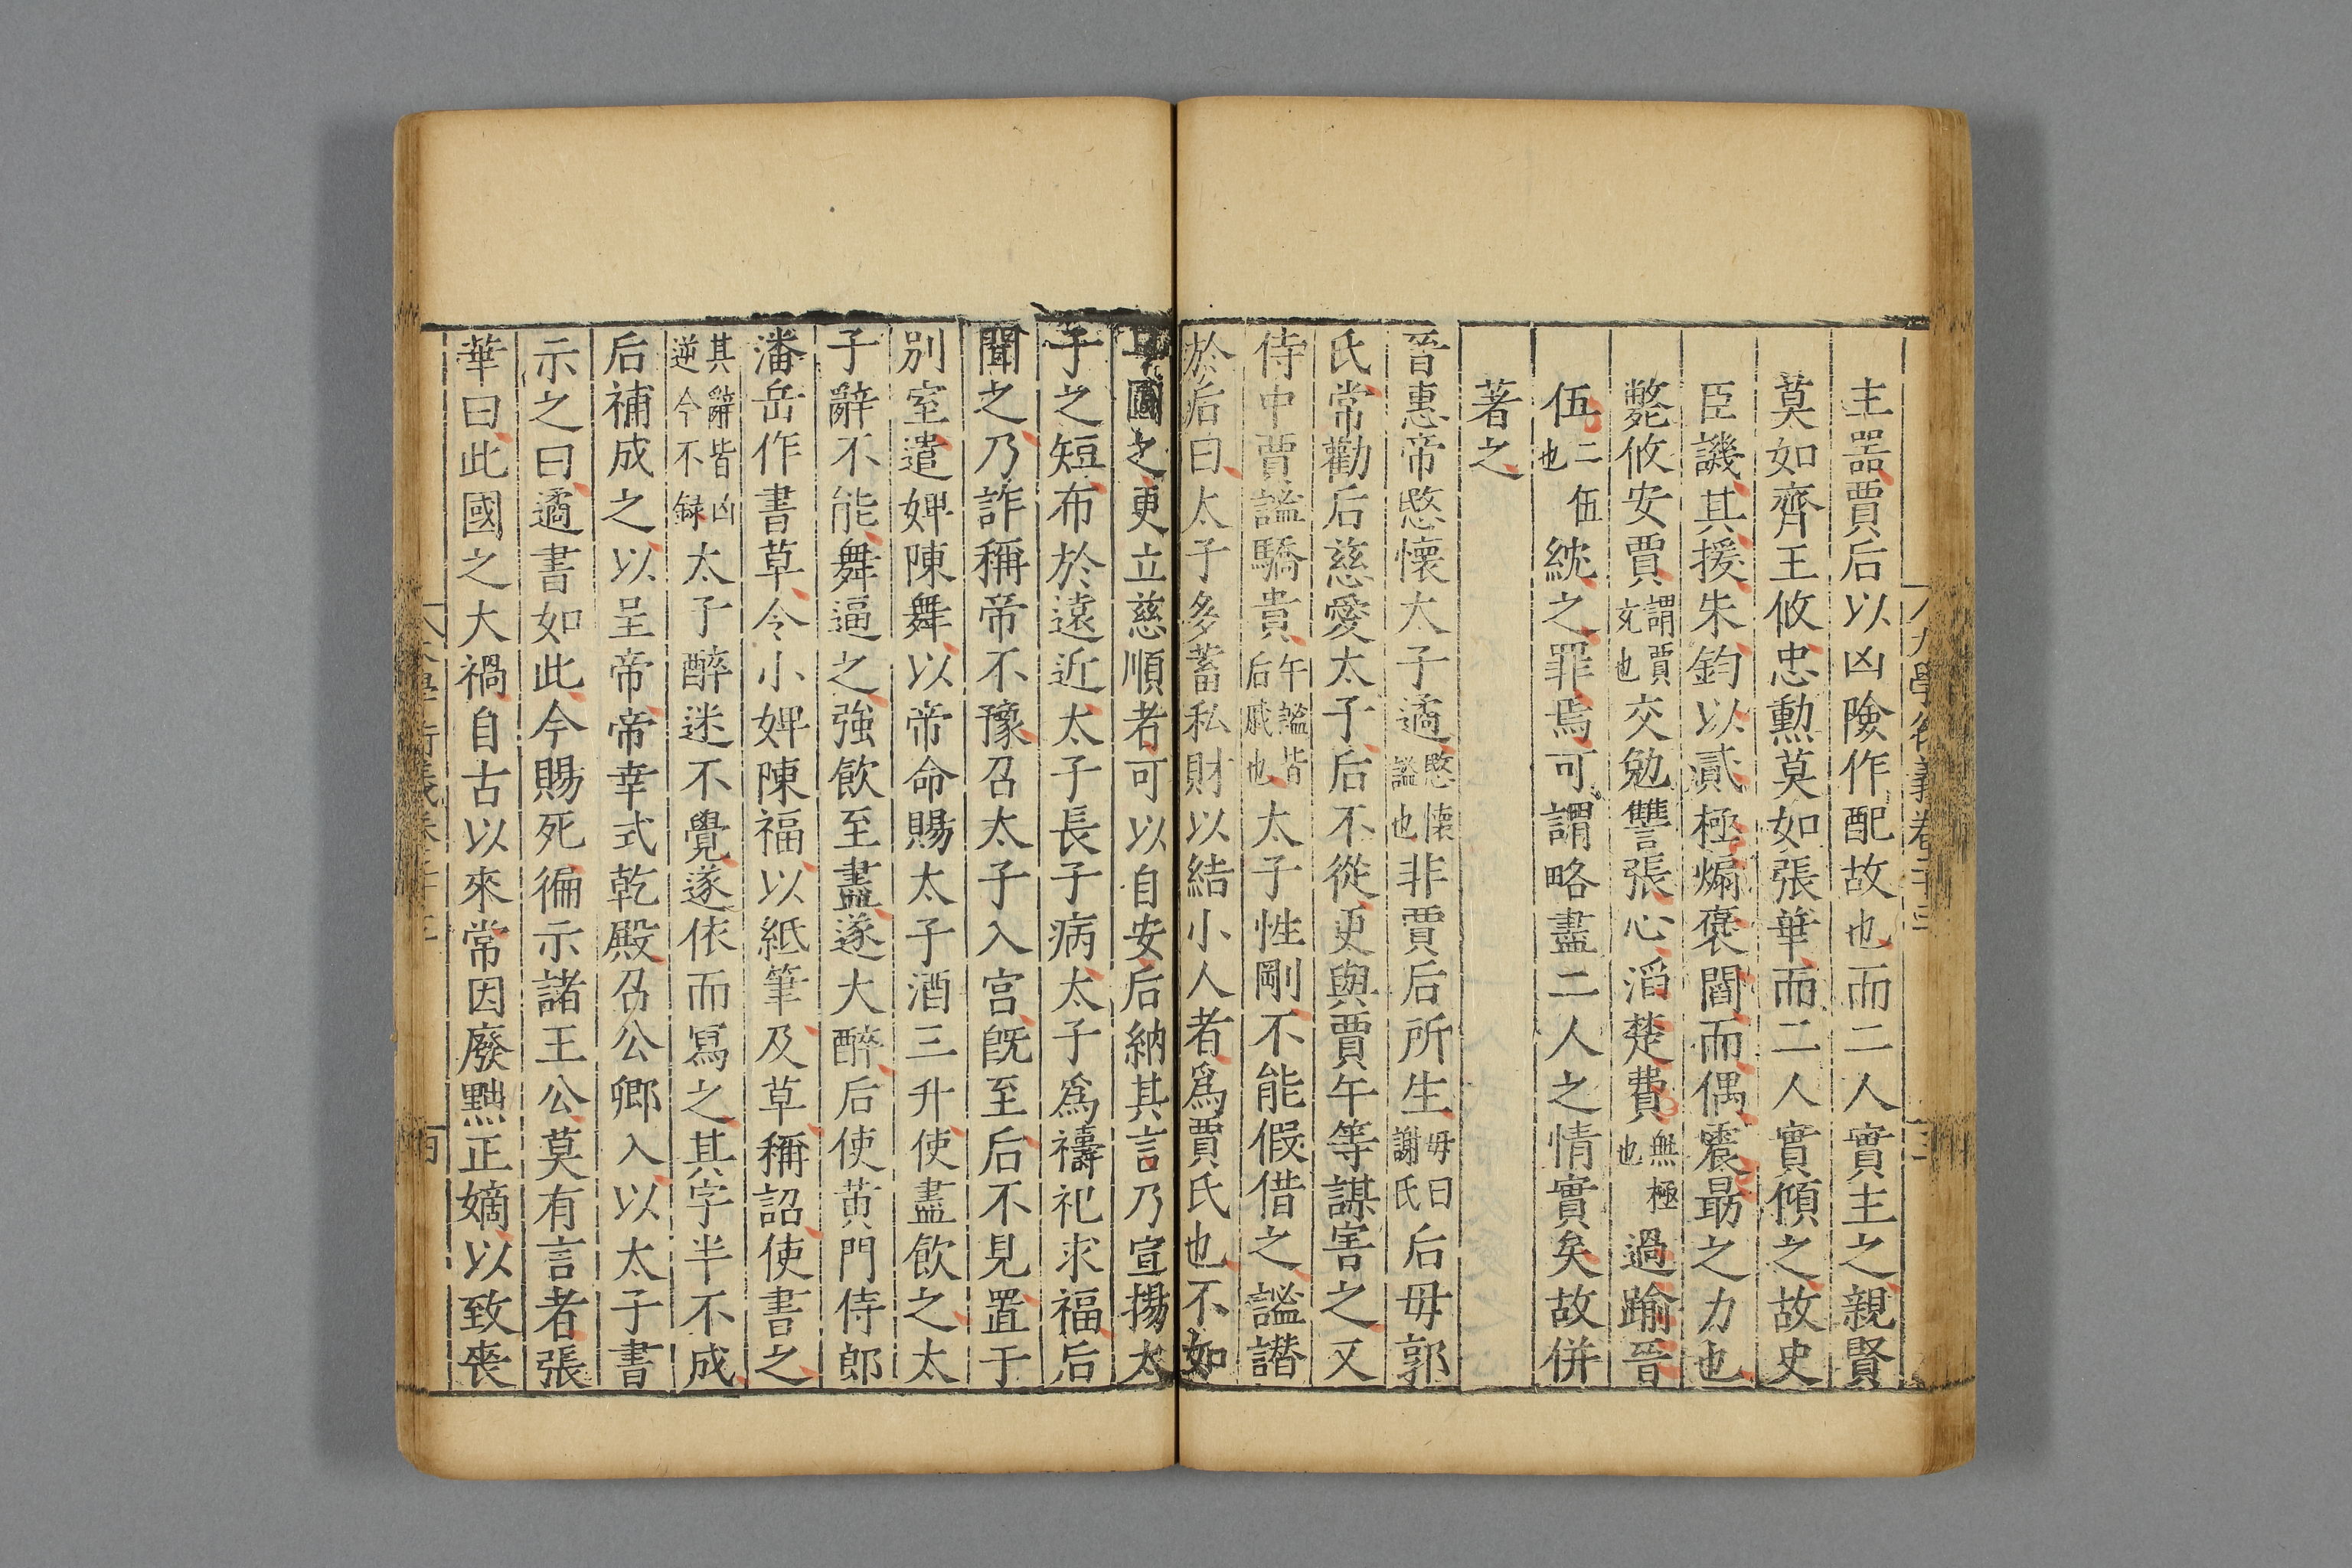 主噐賈后以凶險作配故也而二人實主之親賢
莫如齊王攸忠勲莫如張華而二人實傾之故史
臣譏其援朱鈞以貳極煽褒閻而偶震朂之力也
斃攸安賈謂賈充也交勉讐張心滔楚費無極也過踰晉
伍二伍也紞之罪焉可謂略盡二人之情實矣故併
著之
晉惠帝愍懷太子遹愍懷謚也非賈后所生母曰謝氏后母郭
氏常勸后慈愛太子后不從更與賈午等謀害之又
侍中賈謐驕貴午謐皆后戚也太子性剛不能假借之謐譖
於后曰太子多蓄私財以結小人者爲賈氏也不如
早圖之更立慈順者可以自安后納其言乃宣揚太
子之短布於遠近太子長子病太子爲禱祀求福后
聞之乃詐稱帝不豫召太子入宮旣至后不見置于
別室遣婢陳舞以帝命賜太子酒三升使盡飲之太
子辭不能舞逼之強飲至盡遂大醉后使黄門侍郎
潘岳作書草令小婢陳福以紙筆及草稱詔使書之
其辭皆凶逆今不録太子醉迷不覺遂依而寫之其字半不成
后補成之以呈帝帝幸式乾殿召公卿入以太子書
示之曰遹書如此今賜死徧示諸王公莫有言者張
華曰此國之大禍自古以來常因廢黜正嫡以致喪